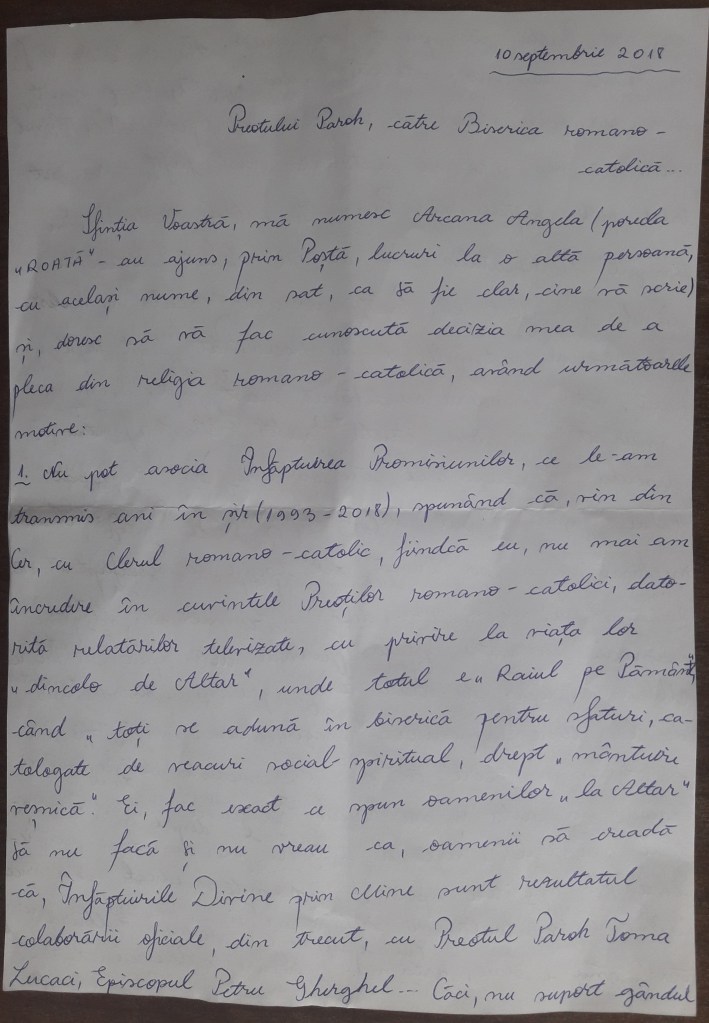 10 septembrie 2018
Preotului Paroh, către Biserica romano-
catolică...
Sfinția Voastră, mă numesc Arcana Angela (porecla
"ROATĂ" - au ajuns, prin Poștă, lucruri la o altă persoană,
cu același nume, din sat, ca să fie clar, cine vă scrie)
și, doresc să vă fac cunoscută decizia mea de a
pleca din religia romano-catolică, având următoarele
motive:
1. Nu pot asocia Înfăptuirea Promisiunilor, ce le-am
transmis ani în șir (1993-2018), spunând că, vin din
Cer, cu Clerul romano-catolic, fiindcă eu, nu mai am
încredere în cuvintele Preoților romano-catolici, dato-
rită relatărilor televizate, cu privire la viața lor
"dincolo de Altar", unde totul e "Raiul pe Pământ",
când "toți se adună în biserică pentru sfaturi, ca-
tologate de veacuri social-spiritual, drept "mântuire
veșnică". Ei, fac exact ce spun oamenilor "la Altar"
să nu facă și nu vreau ca, oamenii să creadă
că, Înfăptuirile Divine prin Mine sunt rezultatul
colaborării oficiale, din trecut, cu Preotul Paroh Toma
Lucaci, Episcopul Petru Gherghel... Căci, nu suport gândul